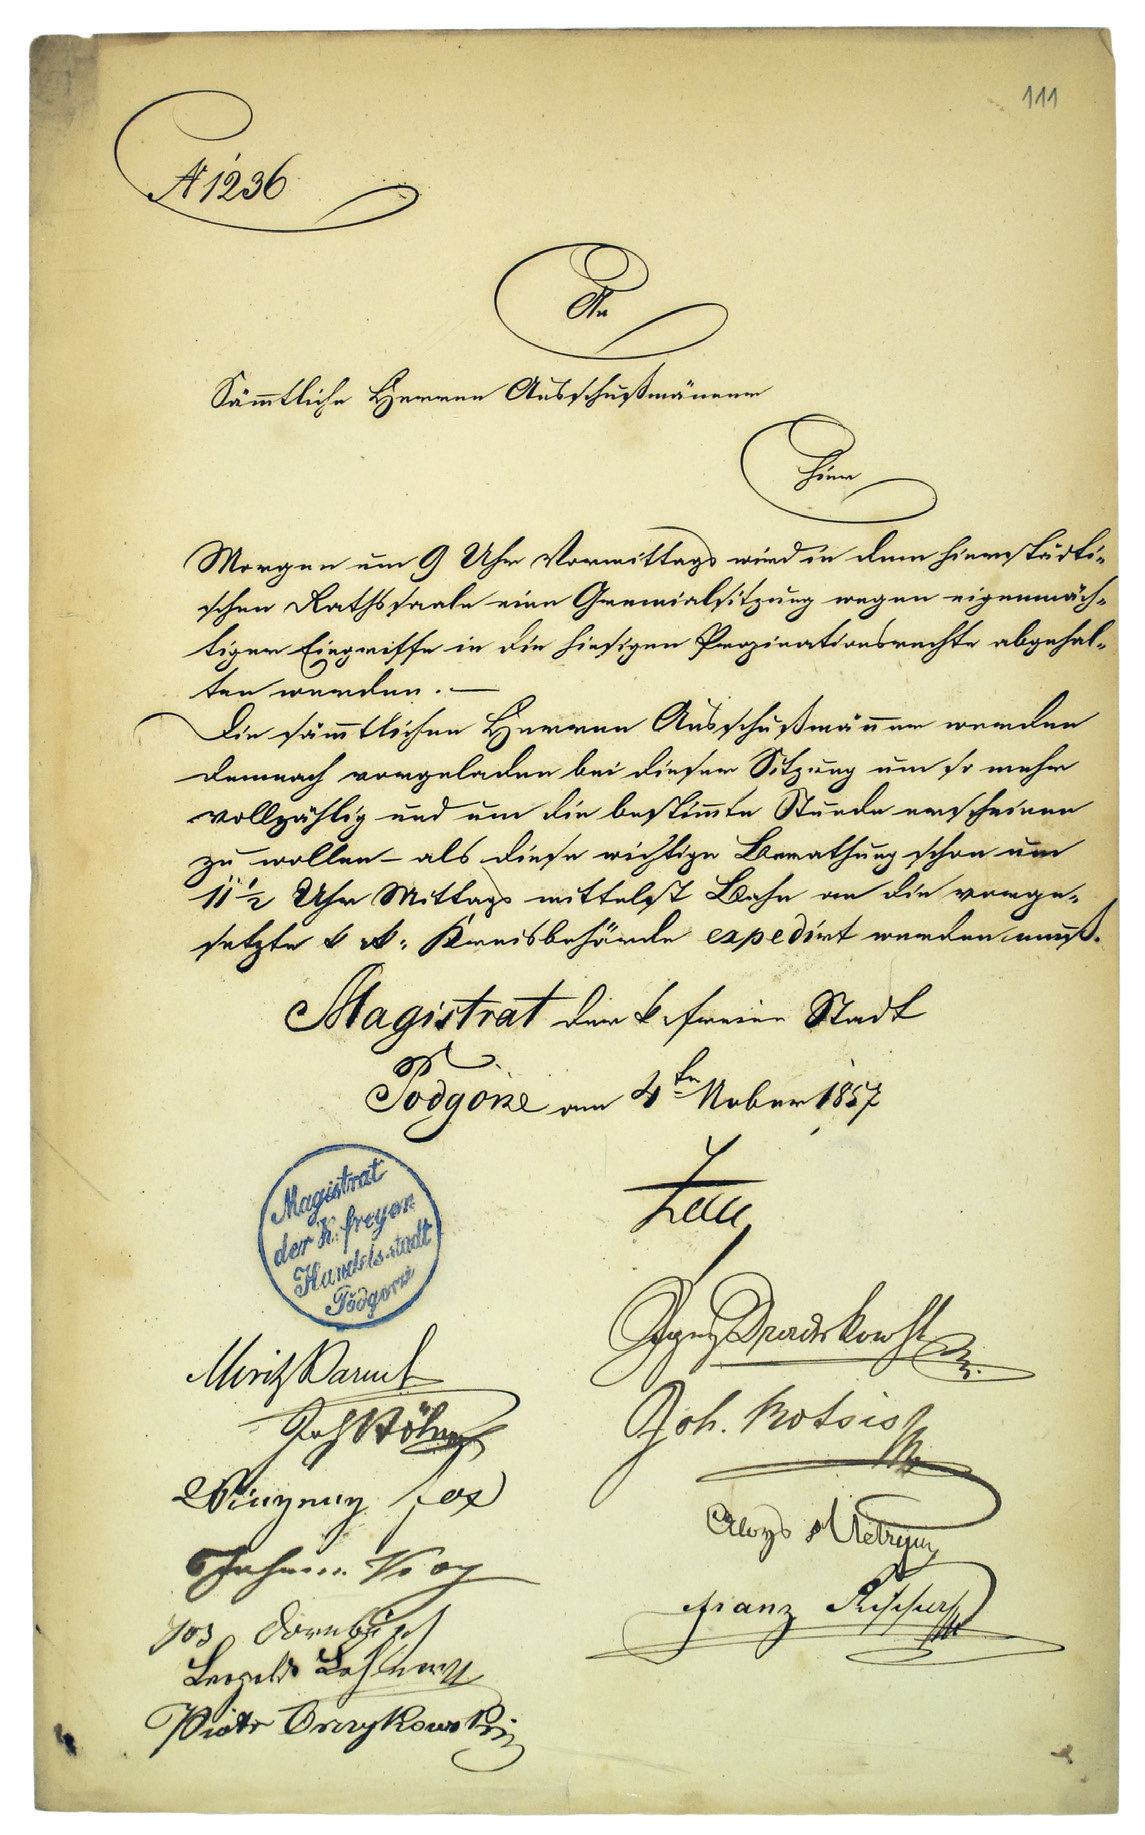 111
N 1236
An
Sämmtliche Herren Ausschußmänner
Hier
Morgen um 9 Uhr Vormittags wird in dem hierstädti-
schen Rathssaale eine Gremialsitzung wegen eigenmäch-
tiger Eingriffe in die hiesigen Propinationsrechte abgehal-
ten werden. —
Die sämmtlichen Herren Ausschußmänner werden
demnach vorgeladen bei dieser Sitzung um so mehr
vollzählig und um die bestimmte Stunde erscheinen
zu wollen – als diese wichtige Berathung schon um
11 1/2 Uhr Mittags mittelst Bahn an die vorge-
setzte k k: Kreisbehörde expedirt werden muß.
Magistrat der k. freien Stadt
Podgórze am 4ten Nober 1857
Magistrat
der K: freyen
Handelsstadt
Podgorze
Johann
Jos
Leopold
Piotr
Joh. Kotsis
Aloys
Franz